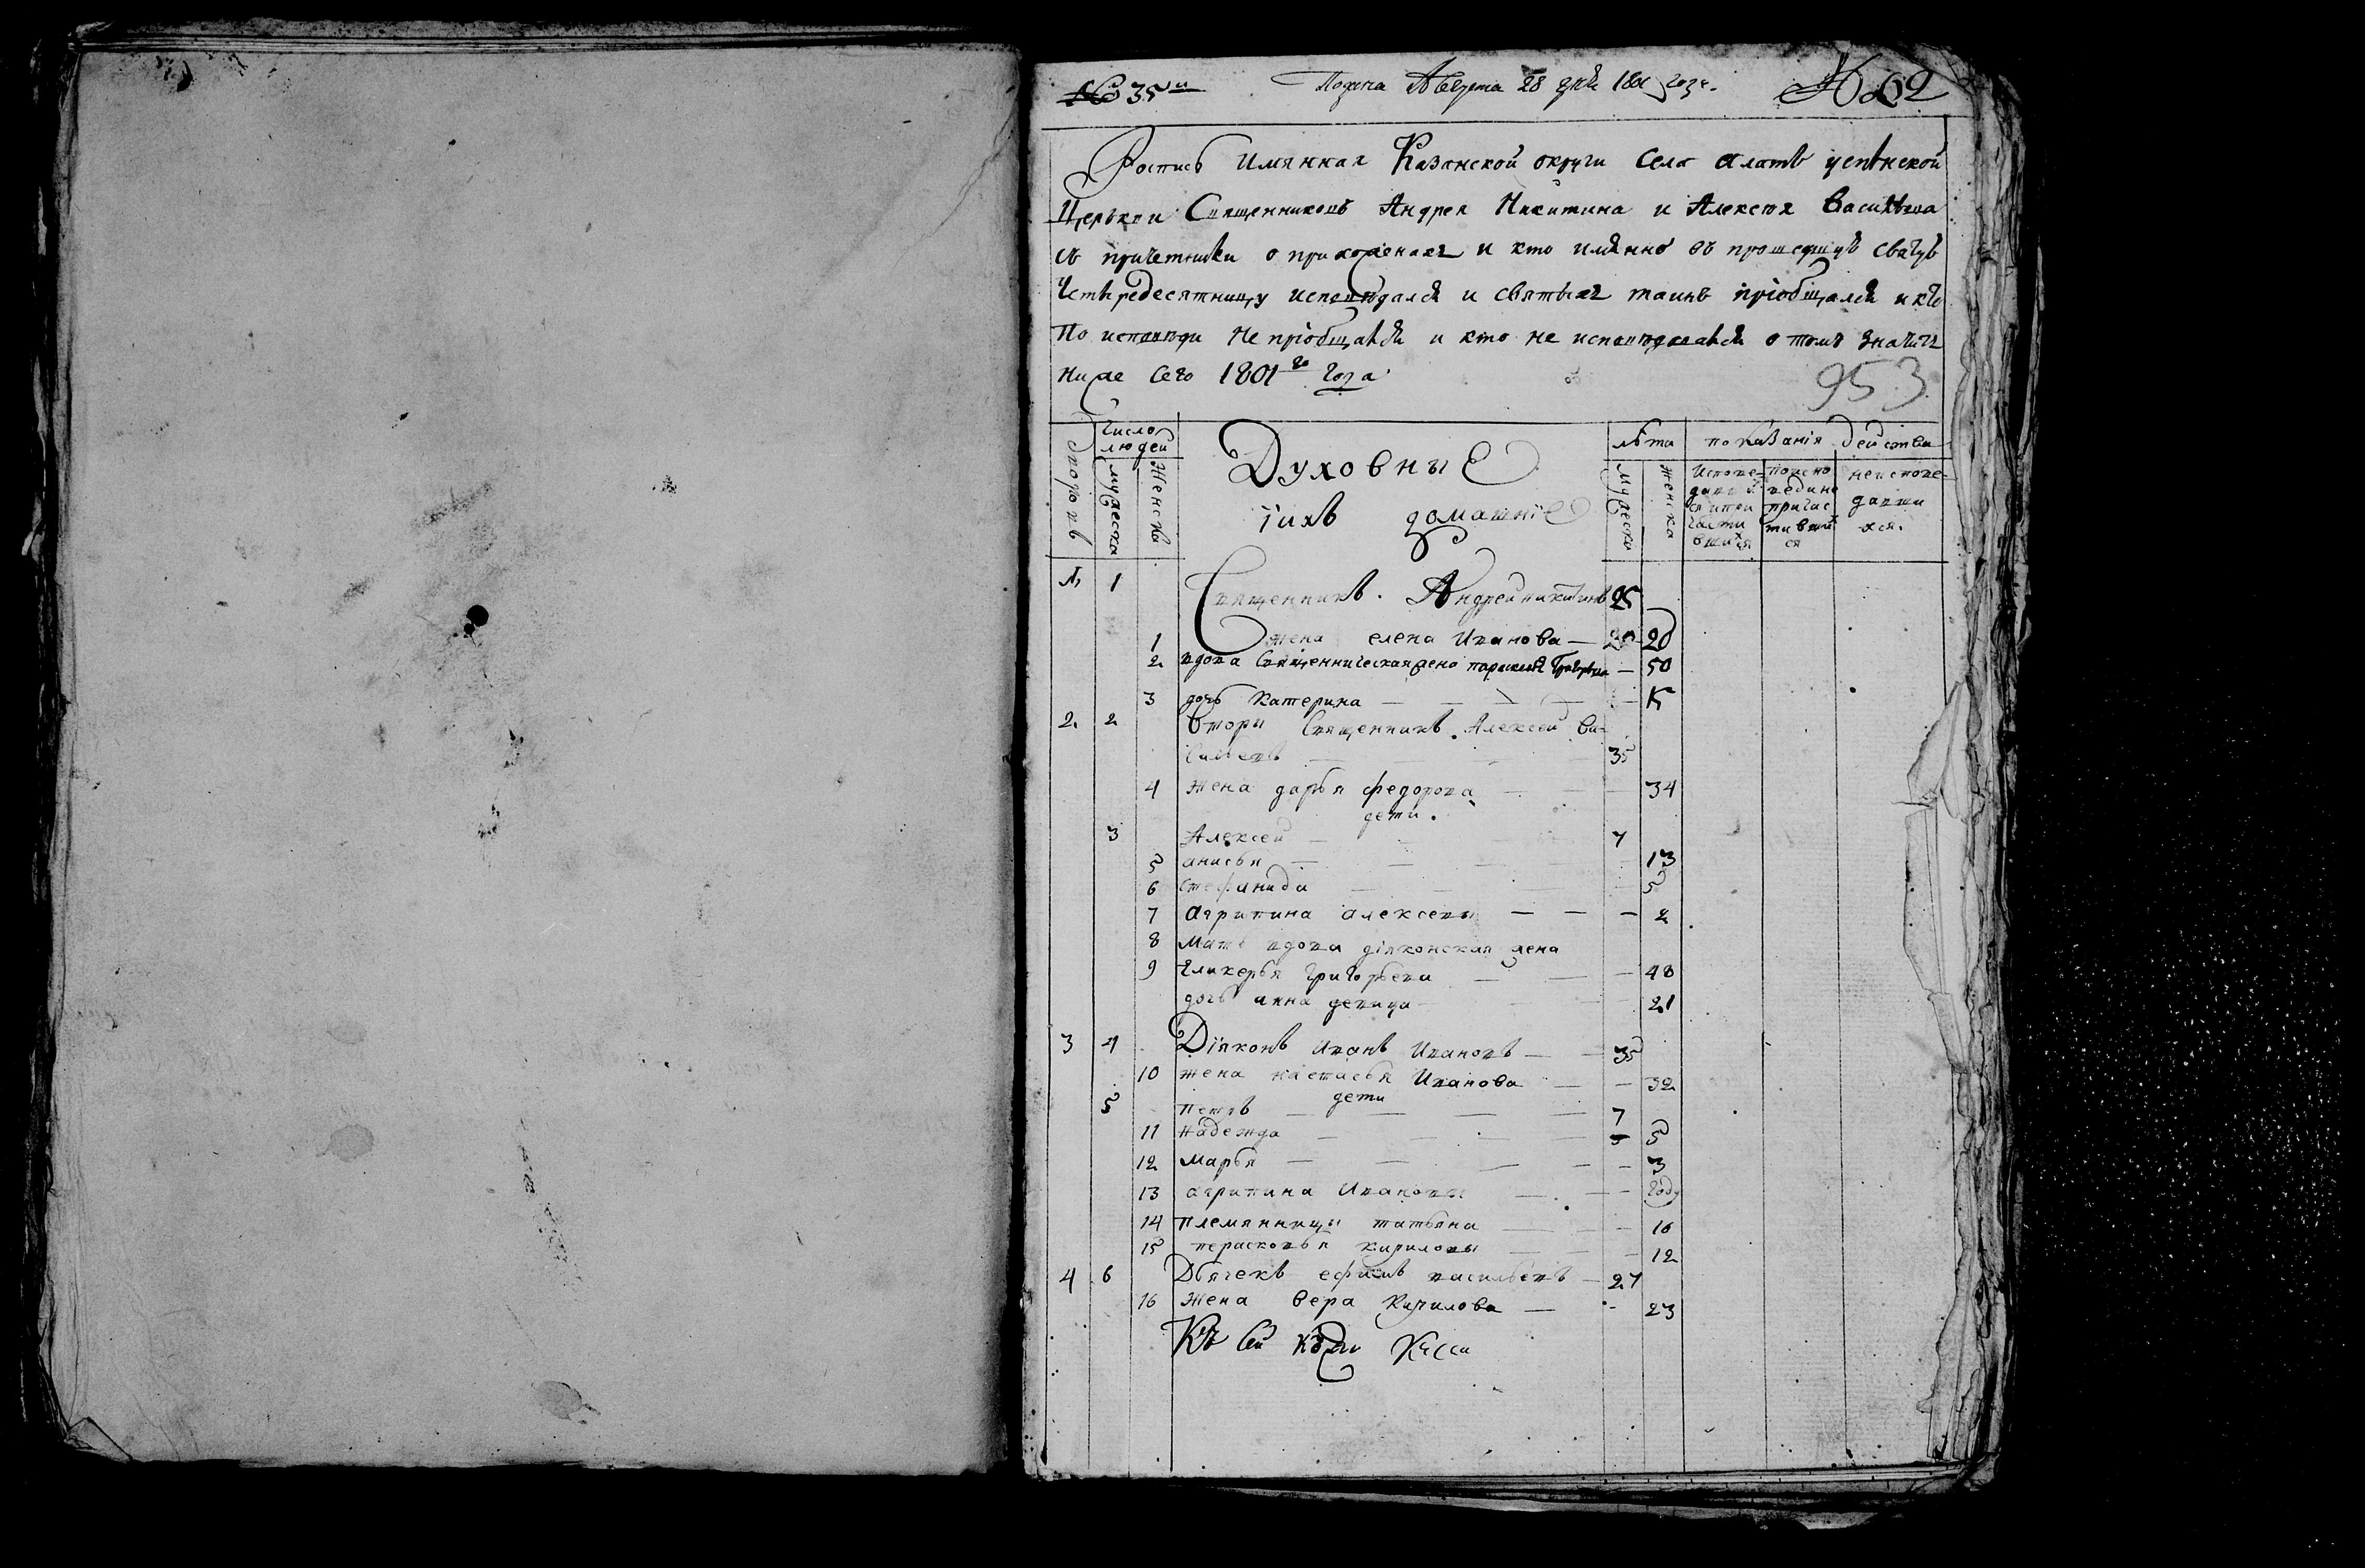 № 35й Подана Августа 28 дня 1801 года. № 62
Роспись Имянная Казанской округи Села алатъ успѣнской
Церькви Священниковъ Андрея Никитина и Алексѣя Васильева
съ причетники о прихоженахъ и кто имянно въ прошедшую святую
Четыредесятницу исповѣдался и святыхъ таинъ пріобщался и кто
По исповѣди Не пріобщался и кто не исповѣдывался о томъ значитъ
ниже Сего 1801го Года
953
дворовъ
Число людей
мужеска
Женска
Духовныя
ихъ домашніе
лѣта
мужеска
женска
показанія действа
Исповедавшися и причастившихся
поисповедине причастившихся
неисповедавшихся.
1 1 Священникъ Андрей никитинъ 25
1 жена елена Иванова — 20 20
2 вдова Священническая жена параскевя Григорьева — 50
3 дочь Катерина — — — — 15
2 2 Вторы Священникъ Алексей Ва-
сильевъ 35
4 Жена дарья федорова — 34
дети.
3 Алексей — 7
5 анисья — — — 13
6 стефанида — 5
7 агрипина алексевы — — — 2
8 Мать вдова діяконская жена
9 Гликерья григорьева — — 48
дочь анна девица 21
3 4 Діяконъ Иванъ Ивановъ — — 35
10 жена настасья Иванова — — 32
дети
5 Петръ — — — — 7
11 Надежда — — — — 5 5
12 Марья — — — — — 3
13 агрипина Ивановы — — — году
14 племянницы татьяна — — — 16
15 перасковья кириловы — — — 12
4 6 Дьячекъ ефимъ васильевъ — 27
16 Жена вера Кирилова — — 23
Къ Сей